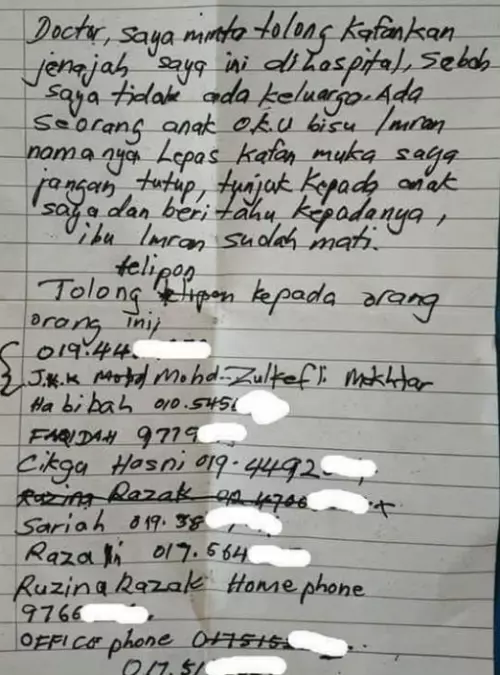 Doctor, saya minta tolong Kafankan
jenajah saya ini dihospital, Sebab
saya tidak ada keluarga. Ada
Seorang anak O.K.U bisu Imran
nama nya Lepas Kafan muka saya
jangan tutup, tunjuk Kepada anak
saya dan beri tahu kepadanya,
ibu Imran sudah mati.
telipon
Tolong telipon kepada orang
orang ini,
019.44
J.K.K Mohd Mohd-Zulkefli Mokhtar
Habibah 010.545
FARIDAH 9779
Cikga Hasni 019.4492
Razina Razak 012 4766 x
Sariah 019.38
Razali 017.564
Ruzina Razak Home phone
9766
OFFICE phone 0175152
017.51